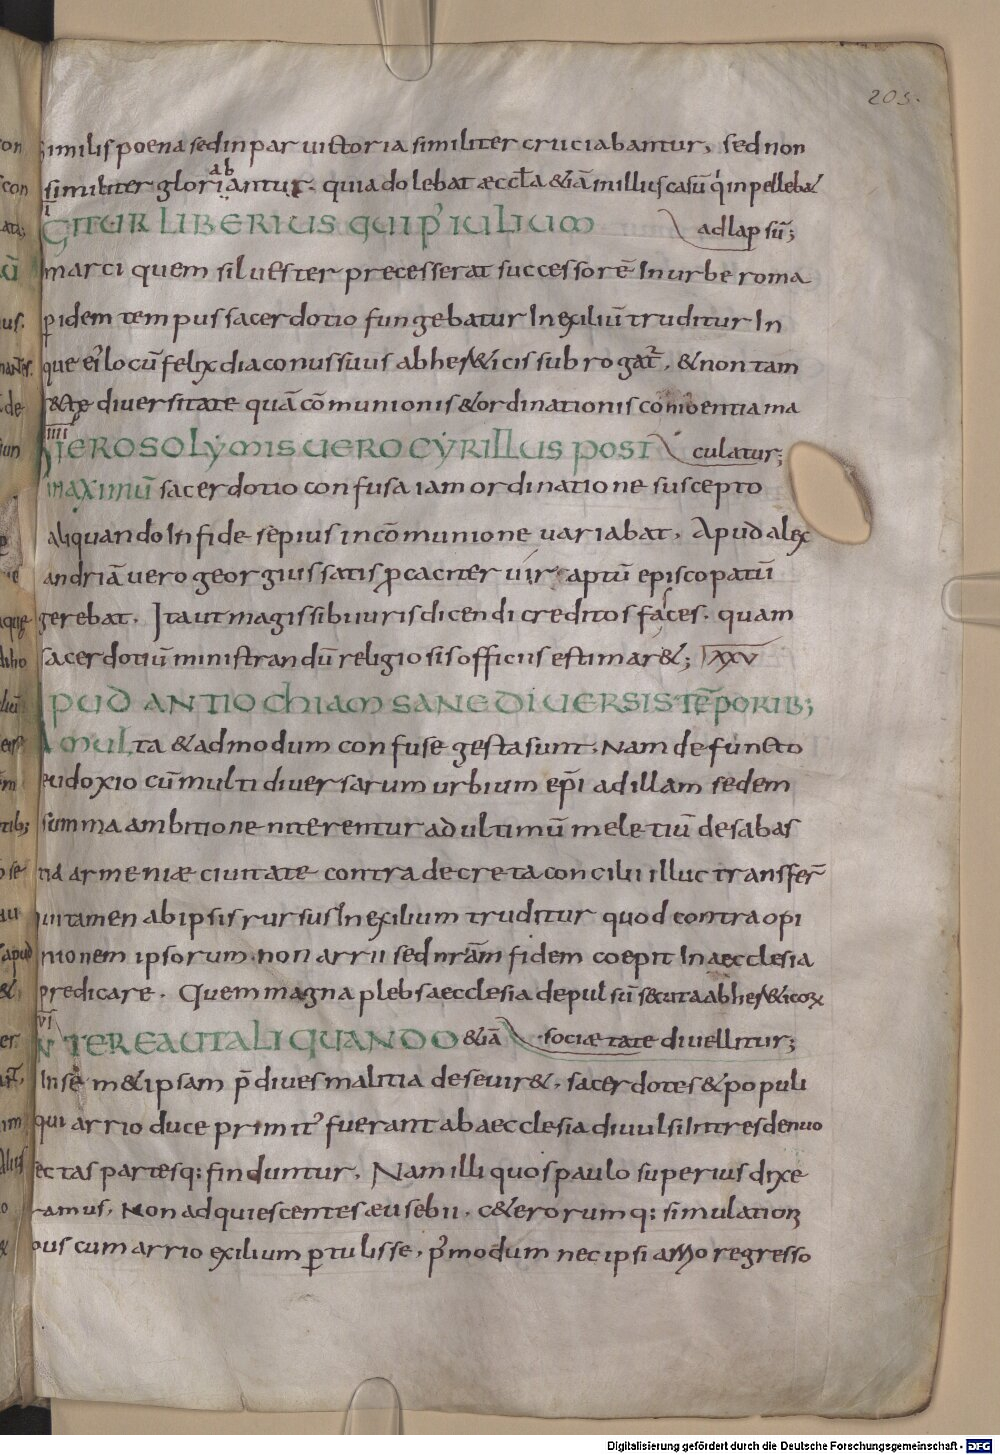 205.
similis poena sed inpar uictoria similiter cruciabantur, sed non
similiter gloriabantur. quia dolebat æccła &iā in illius casū q inpellebat
ad lapsū;
IGITUR LIBERIUS qui p' iulium
marci quem siluester precesserat successorē In urbe roma
p idem tempus sacerdotio fungebatur In exiliū truditur In
que ei' locū felix diaconus suus ab her&icis subrogat~, & non tam
sectæ diuersitate quā cōmunionis & ordinationis coniuentia ma
culatur;
IIII
HIEROSOLYMIS UERO CYRILLUS POST
maximū sacerdotio confusa iam ordinatione suscepto
aliquando In fide sepius in cōmunione uariabat, Apud alex
andriā uero georgius satis pcaciter uir aptū episcopatū
gerebat, Ita ut magis sibi iuris dicendi creditos fasces, quam
sacerdotiū ministrandū religiosis officiis estimar&; XXV
APUD ANTIOCHIAM SANE DIUERSIS TĒPORIB;
multa & admodum confuse gesta sunt; Nam defuncto
eudoxio cū multi diuersarum urbium epi ad illam sedem
summa ambitione niterentur ad ultimū meletiū de sabas
tia armeniæ ciuitate contra decreta concilii illuc transfer
unt tamen ab ipsis rursus In exilium truditur quod contra opi
nionem ipsorum non arrii sed nrām fidem coepit In aecclesia
predicare. Quem magna plebs aecclesia depulsū secuta ab her&icoꝝ
sociætate diuellitur;
VI
INTEREA UT ALIQUANDO &iā
In sē m&ipsam p̄diues malitia deseuir&, sacerdotes & populi
qui arrio duce primit' fuerant ab aecclesia diuulsi In tres denuo
sectas partesq; finduntur, Nam illi quos paulo superius dixe
ramus, Non adquiescentes æusebii, c&erorumq; simulationi
bus cum arrio exilium ptulisse, p'modum nec ipsi arrio regresso
Digitalisierung gefördert durch die Deutsche Forschungsgemeinschaft - DFG